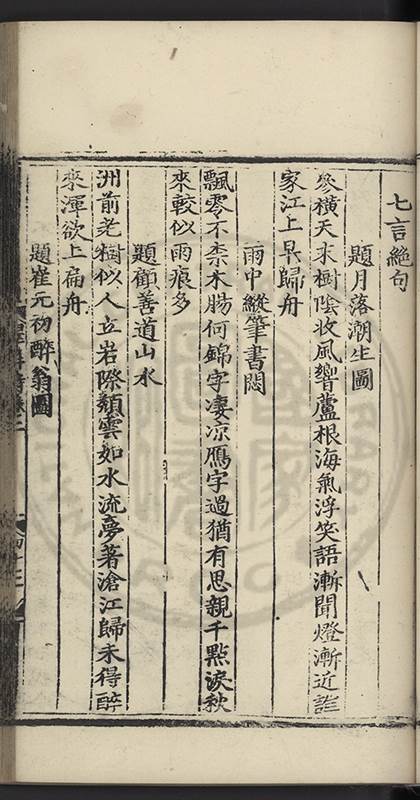 七言絕句
題月落潮生圖
參橫天末樹陰收風響蘆根海氣浮笑語漸聞燈漸近誰
家江上早歸舟
雨中縱筆書悶
飄零不柰木腸何錦字凄凉鴈字過猶有思親千點淚秋
來較似雨痕多
題顧善道山水
洲前老樹似人立岩際頹雲如水流夢著滄江歸未得醉
來渾欲上扁舟
題崔元初醉翁圖